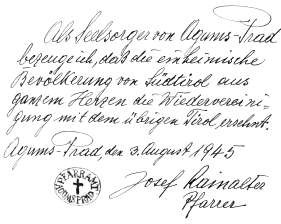 Als Seelsorger von Agums-Prad
bezeuge ich, daß die einheimische
Bevölkerung von Südtirol aus
ganzem Herzen die Wiederverei̅ni-
gung mit dem übrigen Tirol ersehnt.
Agums-Prad den 3. August 1945
PFARRAMT
AGUMS PRAD
Josef Rainalter
Pfarrer